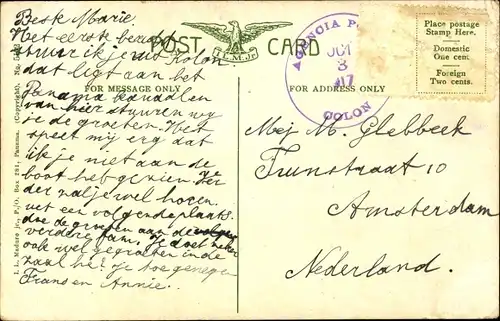 Beste Marie.
Het eerste bezoek
stuur ik je uit Kolon
dat ligt aan het
Panama kanaal en
van hier sturen wij
je de groeten. Het
speet mij erg dat
ik je niet aan de
boot heb gezien. Ver
der zal je wel horen
uit een volgende plaats
doe de groeten aan de
verdere fam. Je doet
ook wel groeten in de
zaal hè? je toegenegen
Frans en Annie.
POST CARD
I.L.M.Jr.
FOR MESSAGE ONLY
FOR ADDRESS ONLY
AGENCIA
OCT
3
17
COLON
Place postage
Stamp Here.
Domestic
One cent
Foreign
Two cents.
Mej M. Glebbeek
Funstraat 10
Amsterdam
Nederland.
I. L. Maduro jr., P./O. Box 281, Panama. (Copyright). No.